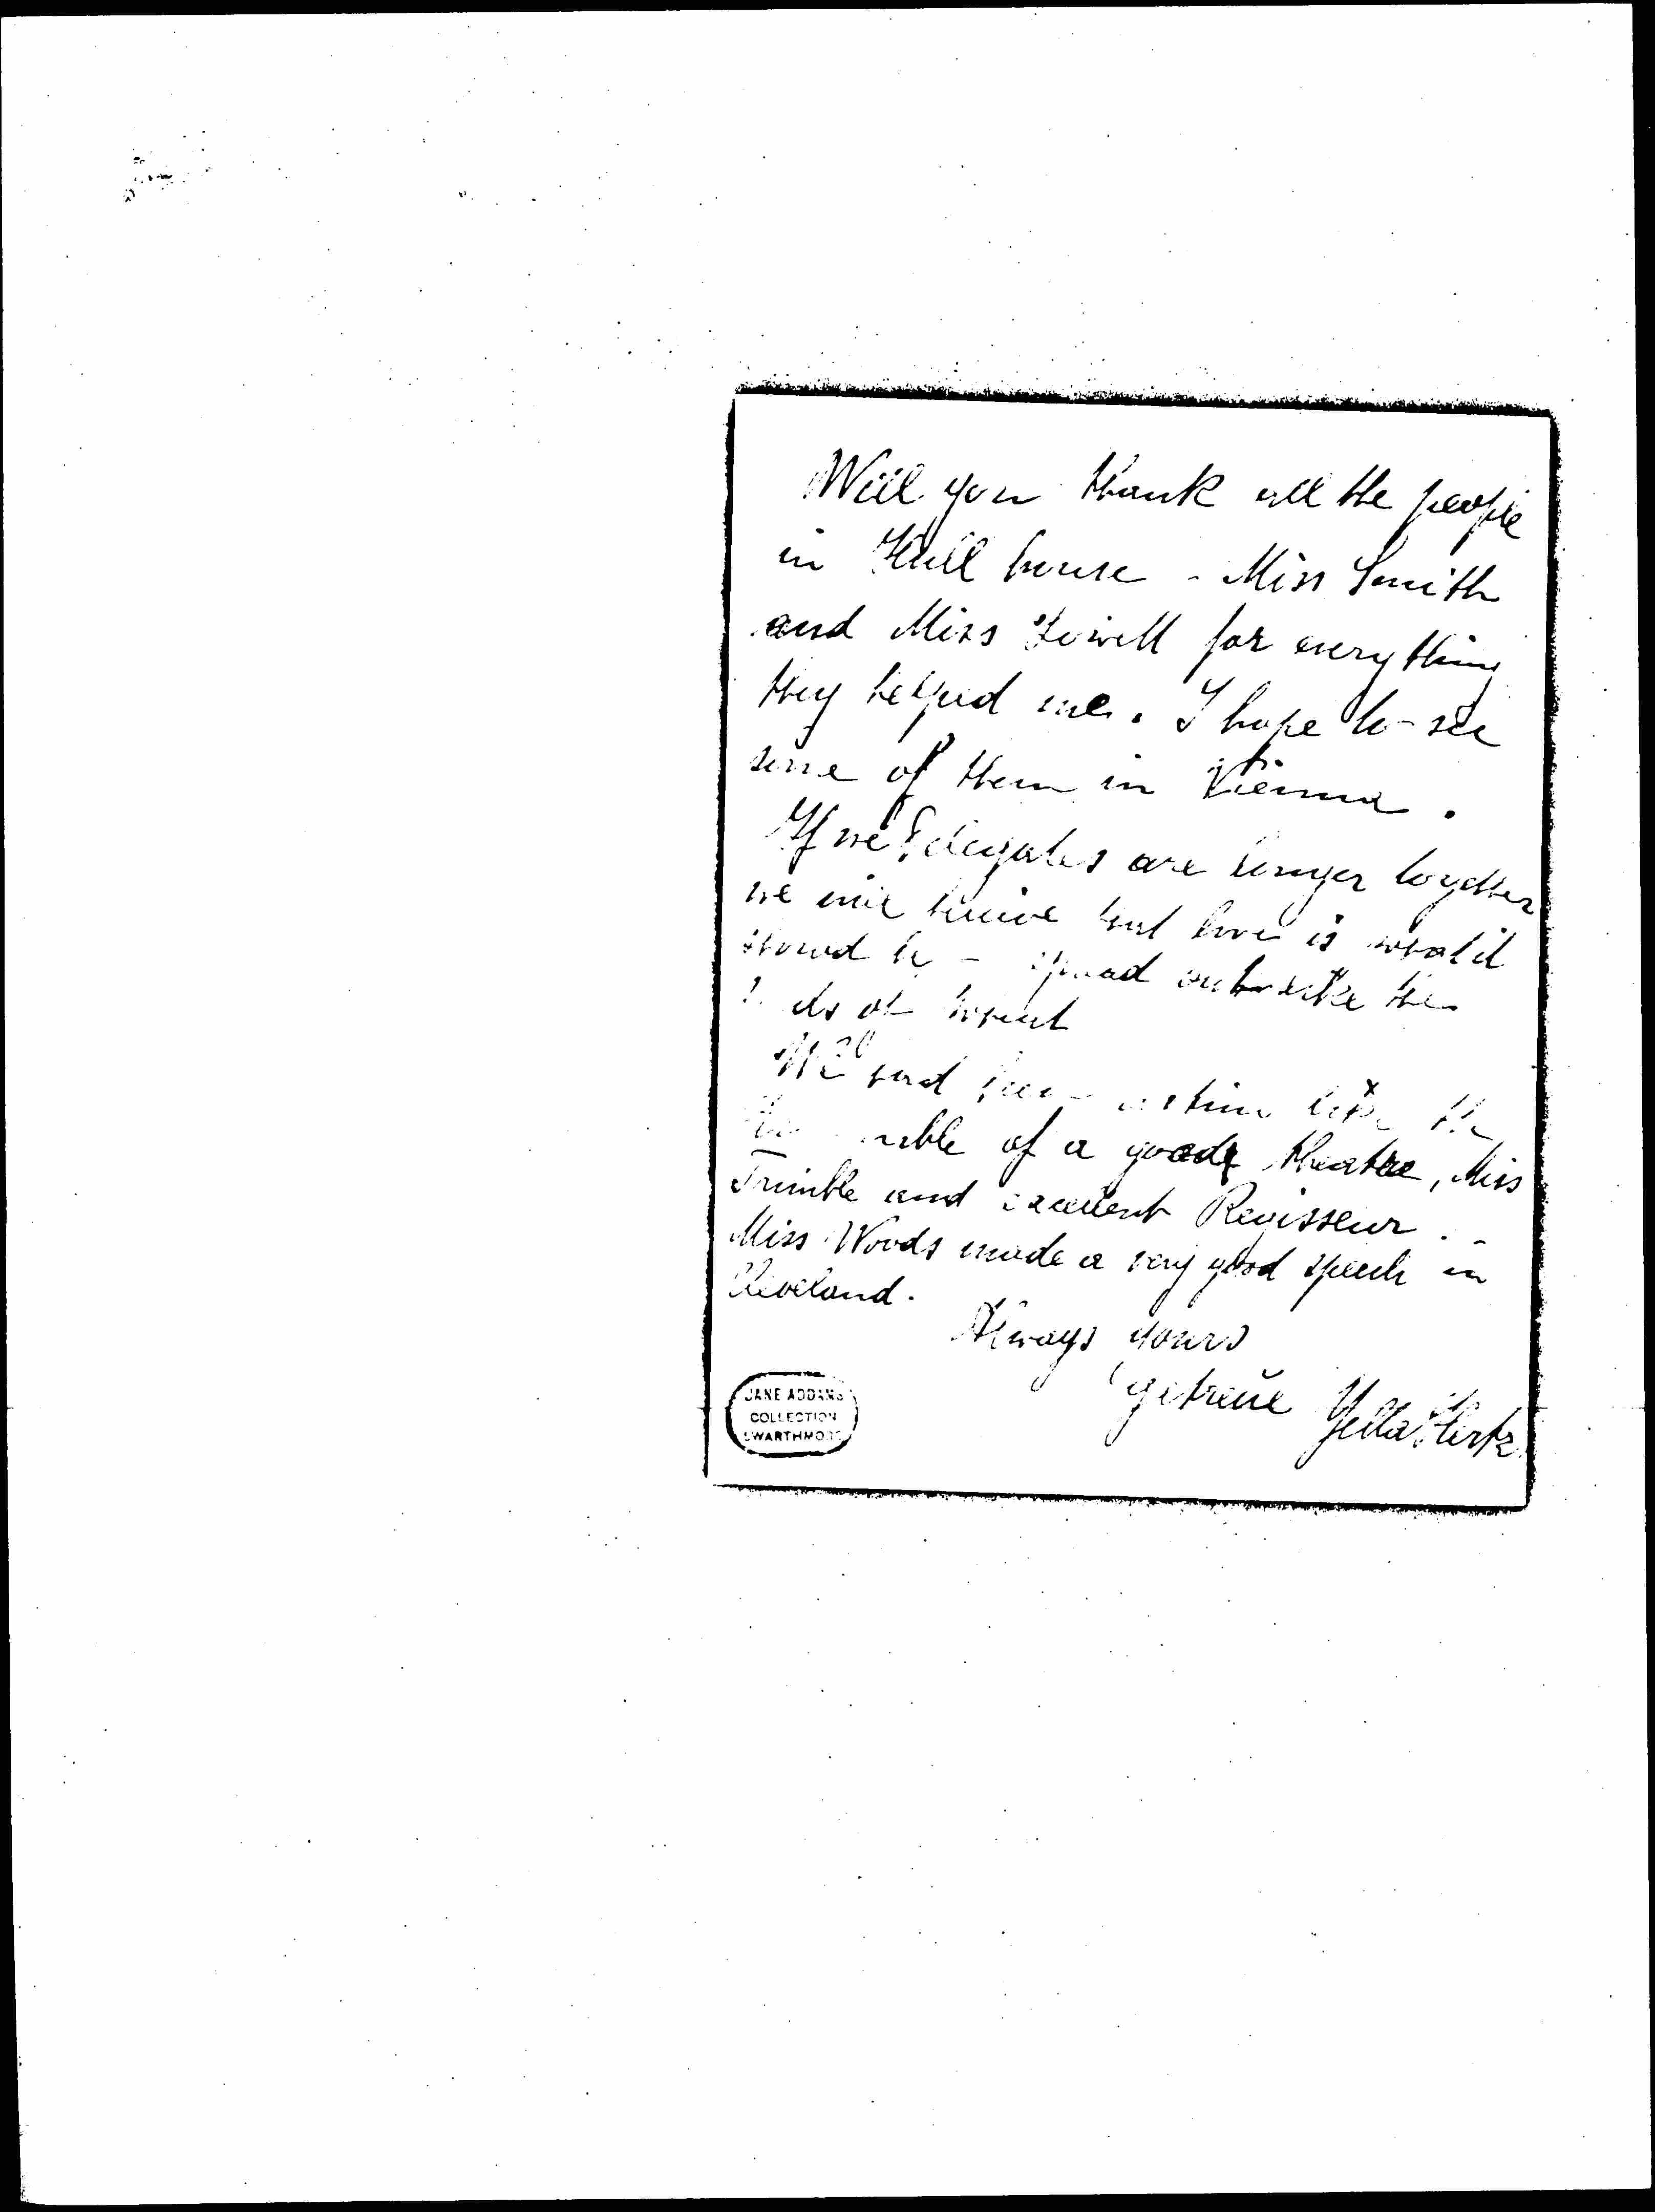 Will you thank all the people
in Hull house - Miss Smith
and Miss for everything
they helped me. I hope to see
some of them in Vienna.
If we delegates are longer together
we will love is what it
should be - spread out like the
of
We had like the
of a good theatre, Miss
Trimble and excellent Regisseur. -
Miss Woods made a very good speech in
Cleveland.
Always yours
getreue Yella Hertzka
JANE ADDAMS
COLLECTION
SWARTHMORE